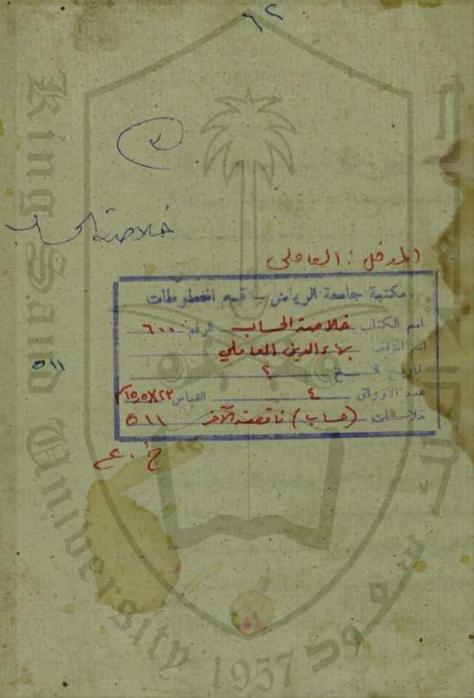 ٦٢
٢
خلاصة الحساب
المدخل : العاملى
مكتبة جامعة الرياض - قسم المخطوطات
اسم الكتاب خلاصة الحساب الرقم ٦٠٠
اسم المؤلف بهاء الدين العاملي
تاريخ النسخ ؟
عدد الأوراق ٤ القياس
ملاحظات (حساب) ناقصة الآخر ٥١١
٥١١
خ . ع
King Saud University
1957
جامعة الملك سعود